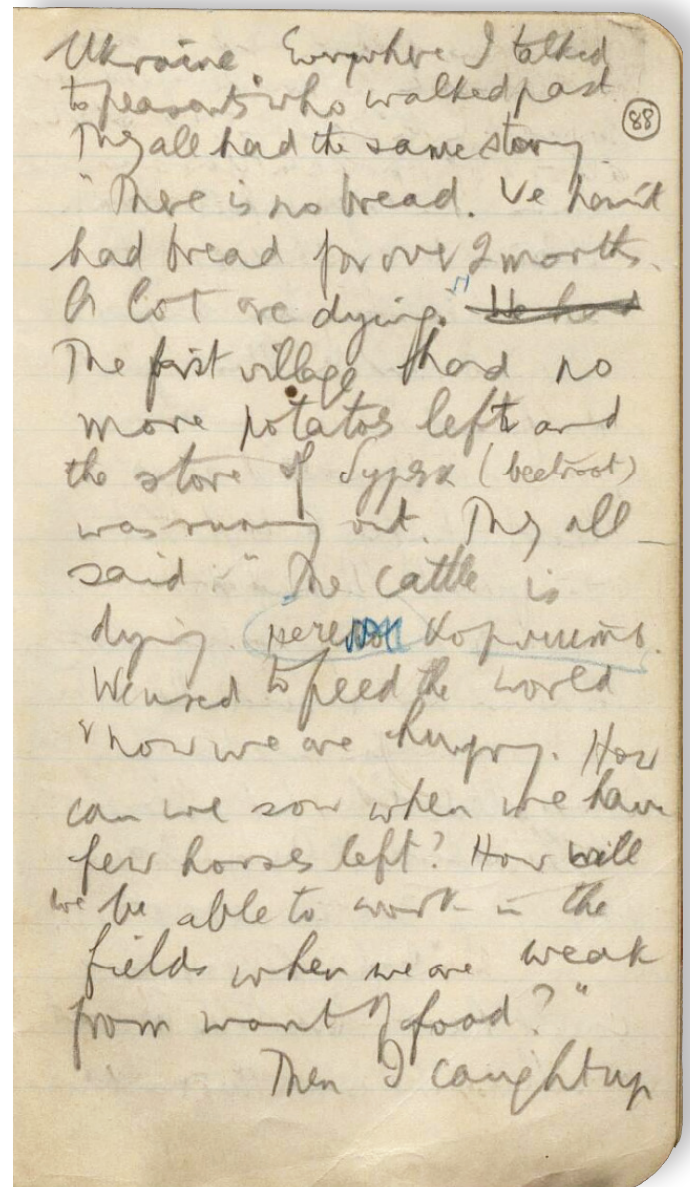 Ukraine. Everywhere I talked
to peasants who walked past
They all had the same story.
(88)
"There is no bread. We havn't
had bread for over 2 months.
A lot are dying." We had
The first village had no
more potatos left and
the store of буряк (beetroot)
was running out. They all
said: "The cattle is
dying. кормить.
We used to feed the world
& now we are hungry. How
can we sow when we have
few horses left? How will
we be able to work in the
fields when we are weak
from want of food?"
Then I caught up